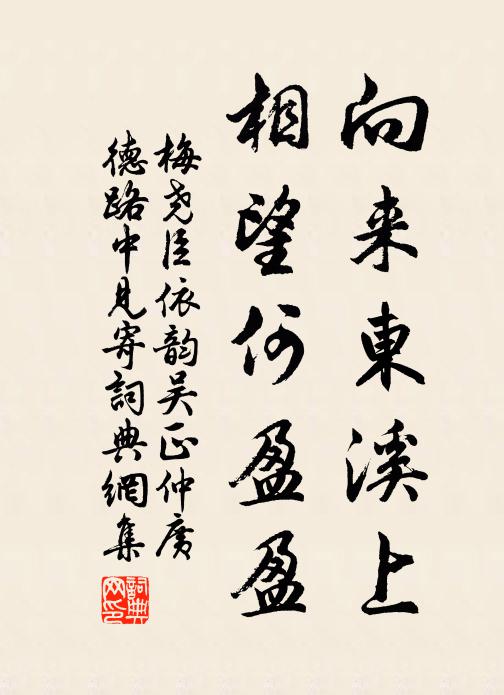 向来東溪上
相望何盈盈
梅尧臣依韵吴正仲廣
德路中見寄詞典網集
詞典网印